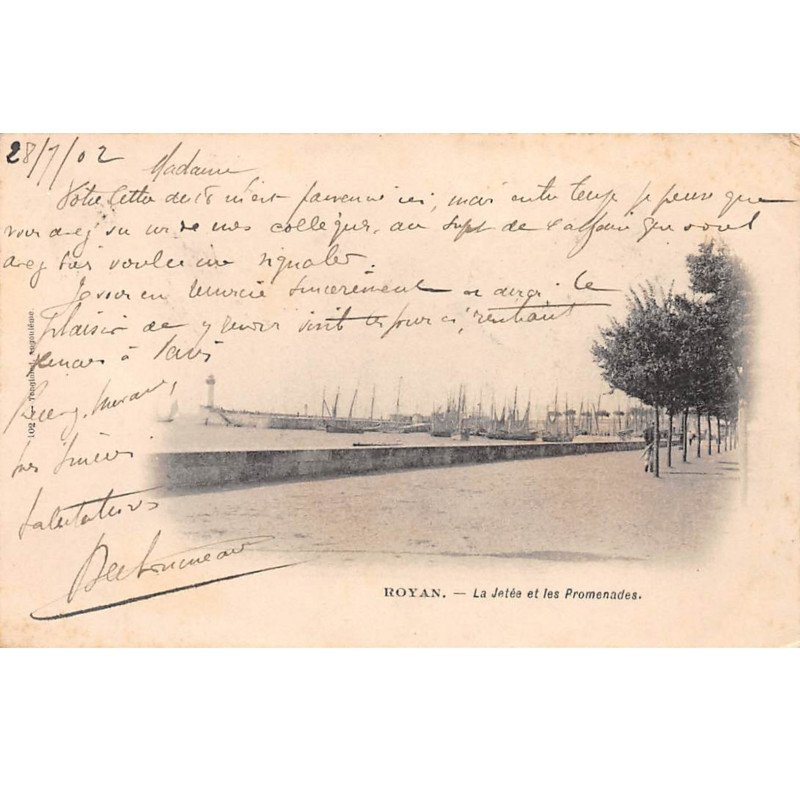 28/7/02
Madame
Votre lettre de 18 m'est parvenue ici, mais entre temps je pense que
vous avez vu un de mes collègues, au sujet de que vous
avez bien voulu me signaler.
Je vous en remercie sincèrement et aurai le
plaisir de venir visiter pour ici, rentrant
à Paris
Recevez, Madame,
mes sincères
salutations
ROYAN. — La Jetée et les Promenades.
102 Angoulême.